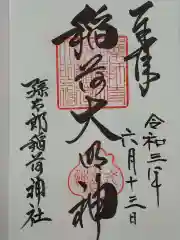 奉拝
稲荷大明神
令和三年
六月十三日
孫太郎稲荷神社